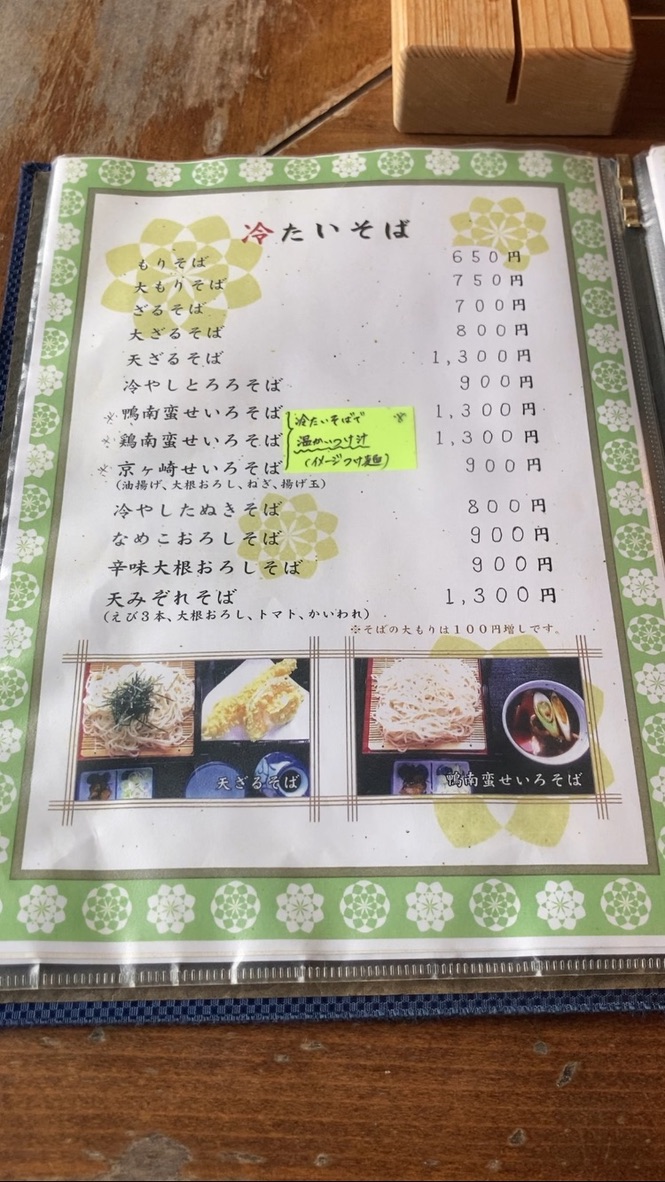 冷たいそば
もりそば 650円
大もりそば 750円
ざるそば 700円
大ざるそば 800円
天ざるそば 1,300円
冷やしとろろそば 900円
※鴨南蛮せいろそば 1,300円
※鶏南蛮せいろそば 1,300円
※京ヶ崎せいろそば 900円
(油揚げ、大根おろし、ねぎ、揚げ玉)
冷たいそばで ※
温かいつけ汁
(イメージつけ麺)
冷やしたぬきそば 800円
なめこおろしそば 900円
辛味大根おろしそば 900円
天みぞれそば 1,300円
(えび3本、大根おろし、トマト、かいわれ)
※そばの大もりは100円増しです。
天ざるそば
鴨南蛮せいろそば